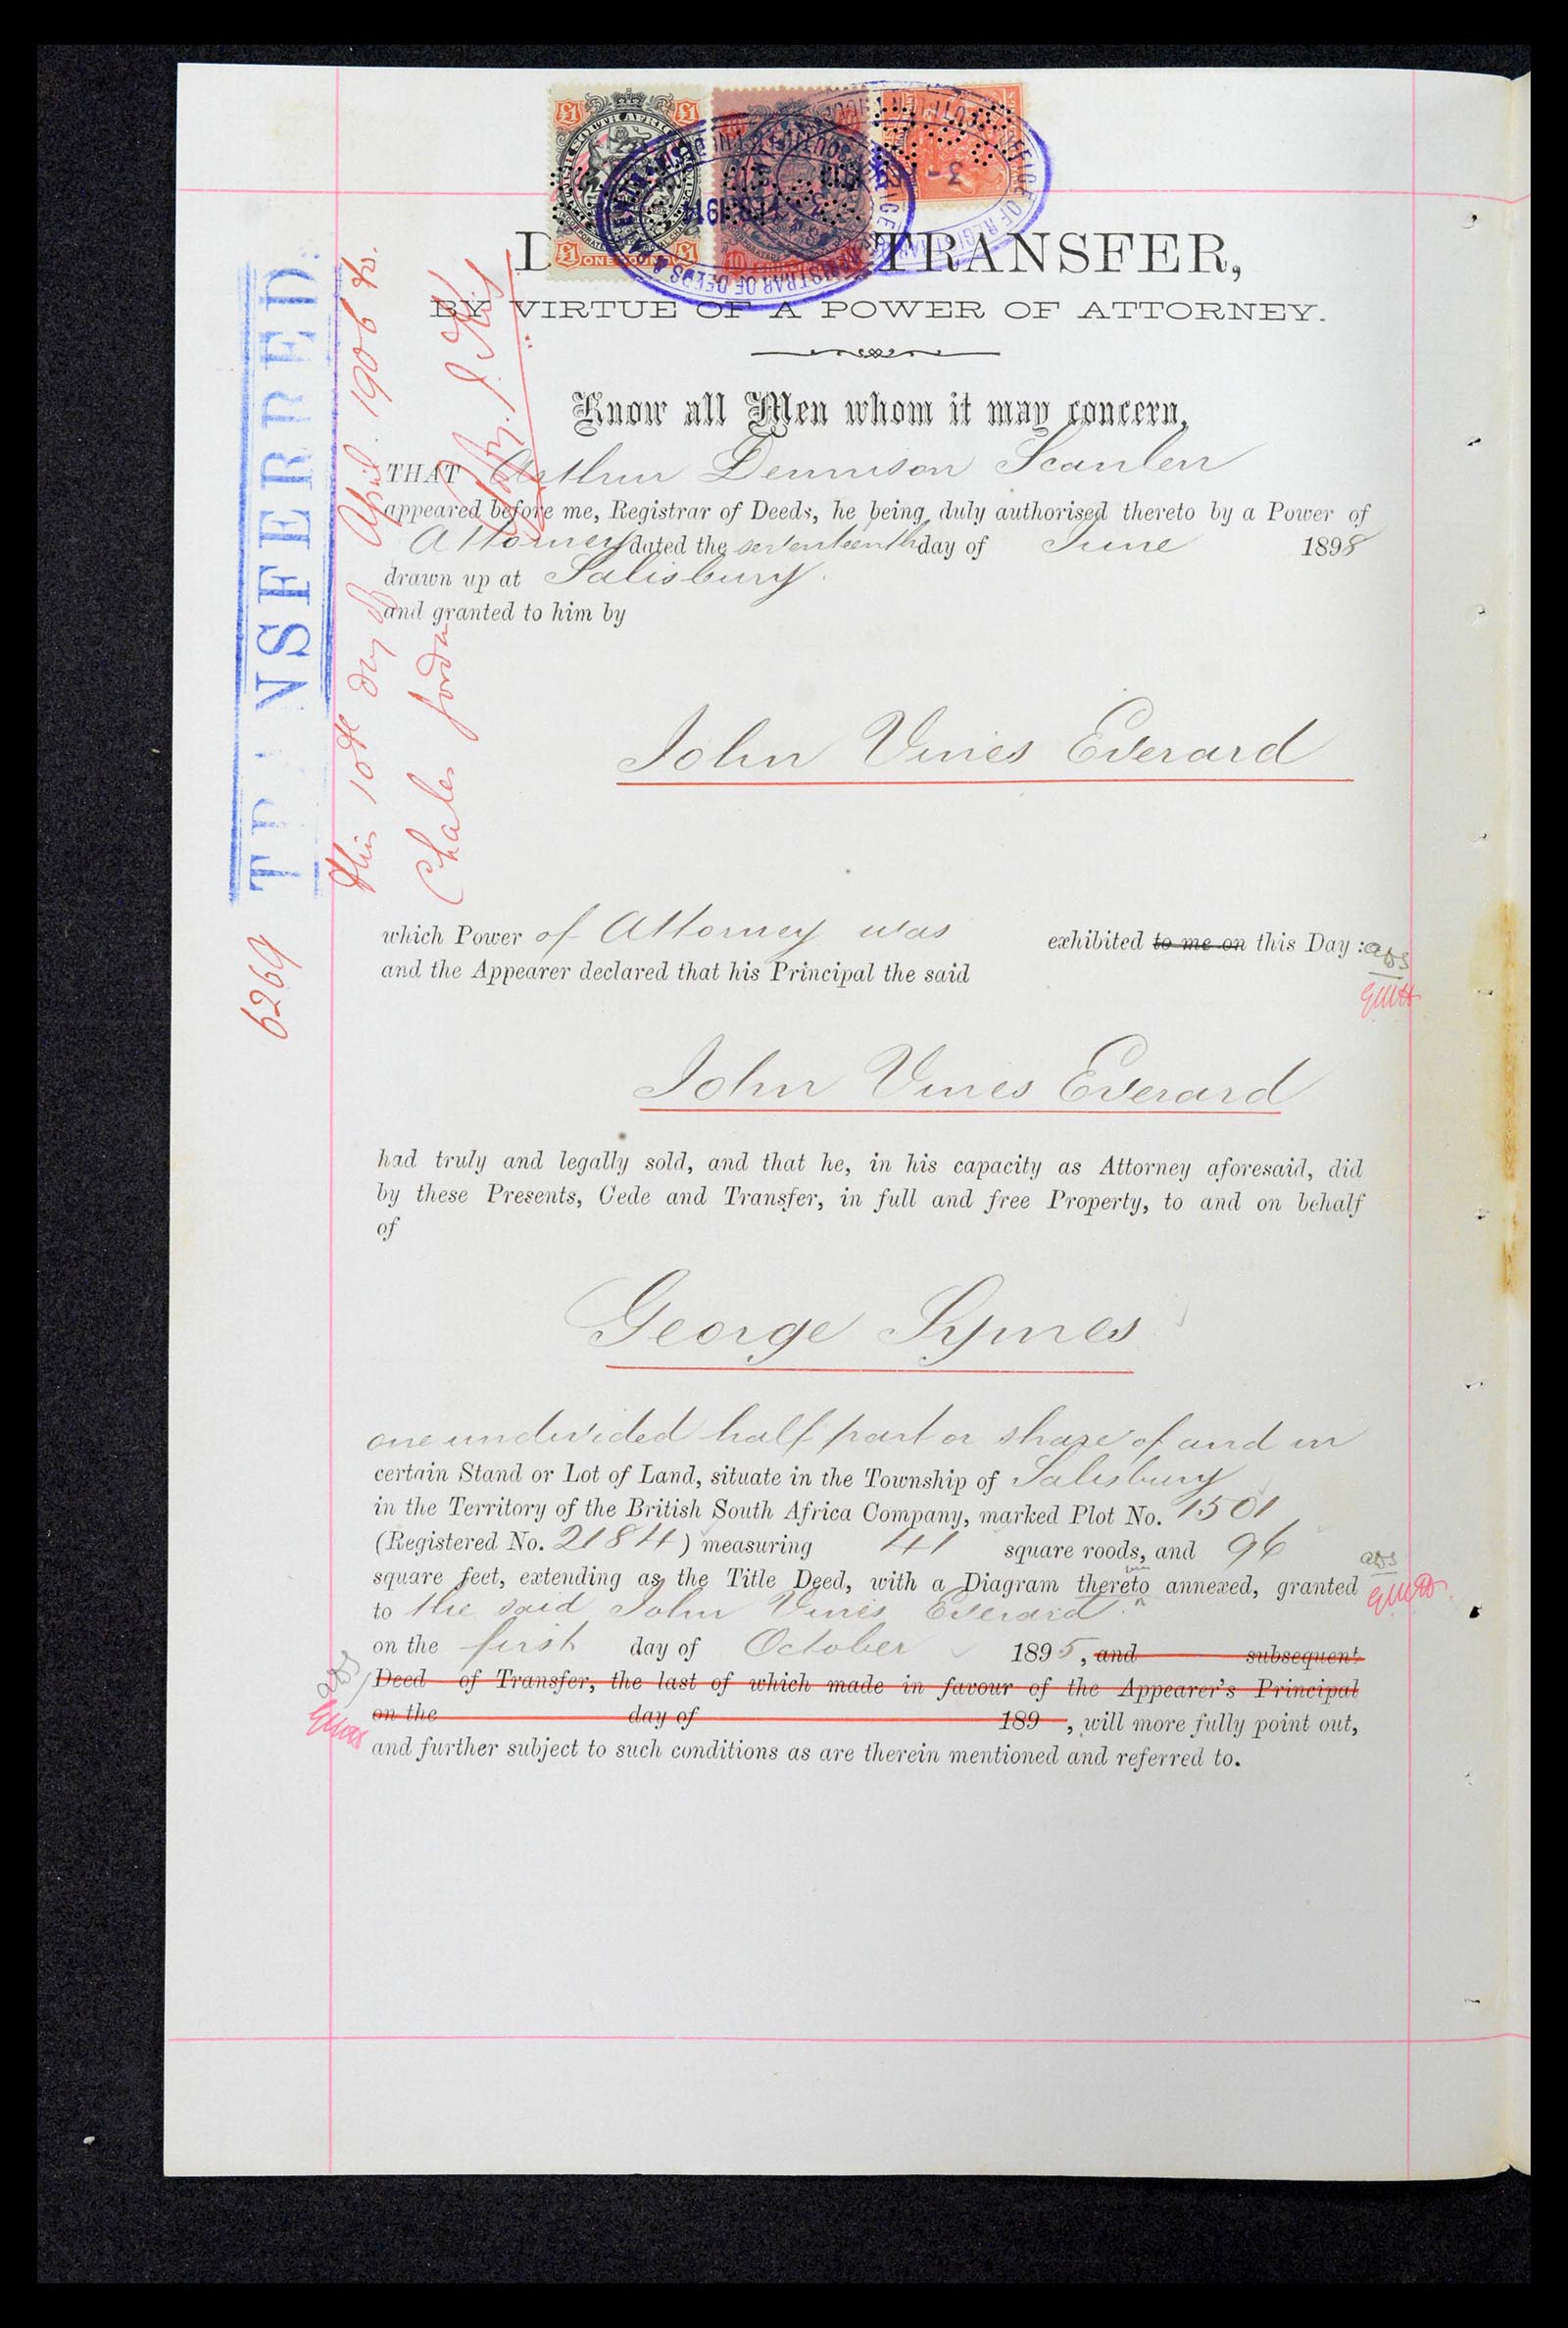 TRANSFER,
BY VIRTUE OF A POWER OF ATTORNEY.
Know all Men whom it may concern,
THAT Arthur Dennison Scanlen
appeared before me, Registrar of Deeds, he being duly authorised thereto by a Power of
Attorney dated the seventeenth day of June 1898
drawn up at Salisbury
and granted to him by
John Vines Everard
which Power of Attorney was exhibited to me on this Day :
and the Appearer declared that his Principal the said
John Vines Everard
had truly and legally sold, and that he, in his capacity as Attorney aforesaid, did
by these Presents, Cede and Transfer, in full and free Property, to and on behalf
of
George Symes
one undivided half part or share of and in
certain Stand or Lot of Land, situate in the Township of Salisbury
in the Territory of the British South Africa Company, marked Plot No. 1501
(Registered No. 2184) measuring 41 square roods, and 96
square feet, extending as the Title Deed, with a Diagram thereto annexed, granted
to the said John Vines Everard
on the first day of October 1895, and subsequent
Deed of Transfer, the last of which made in favour of the Appearer's Principal
on the day of 189 , will more fully point out,
and further subject to such conditions as are therein mentioned and referred to.
TRANSFERRED.
this 10th day of April 1906 to
6269